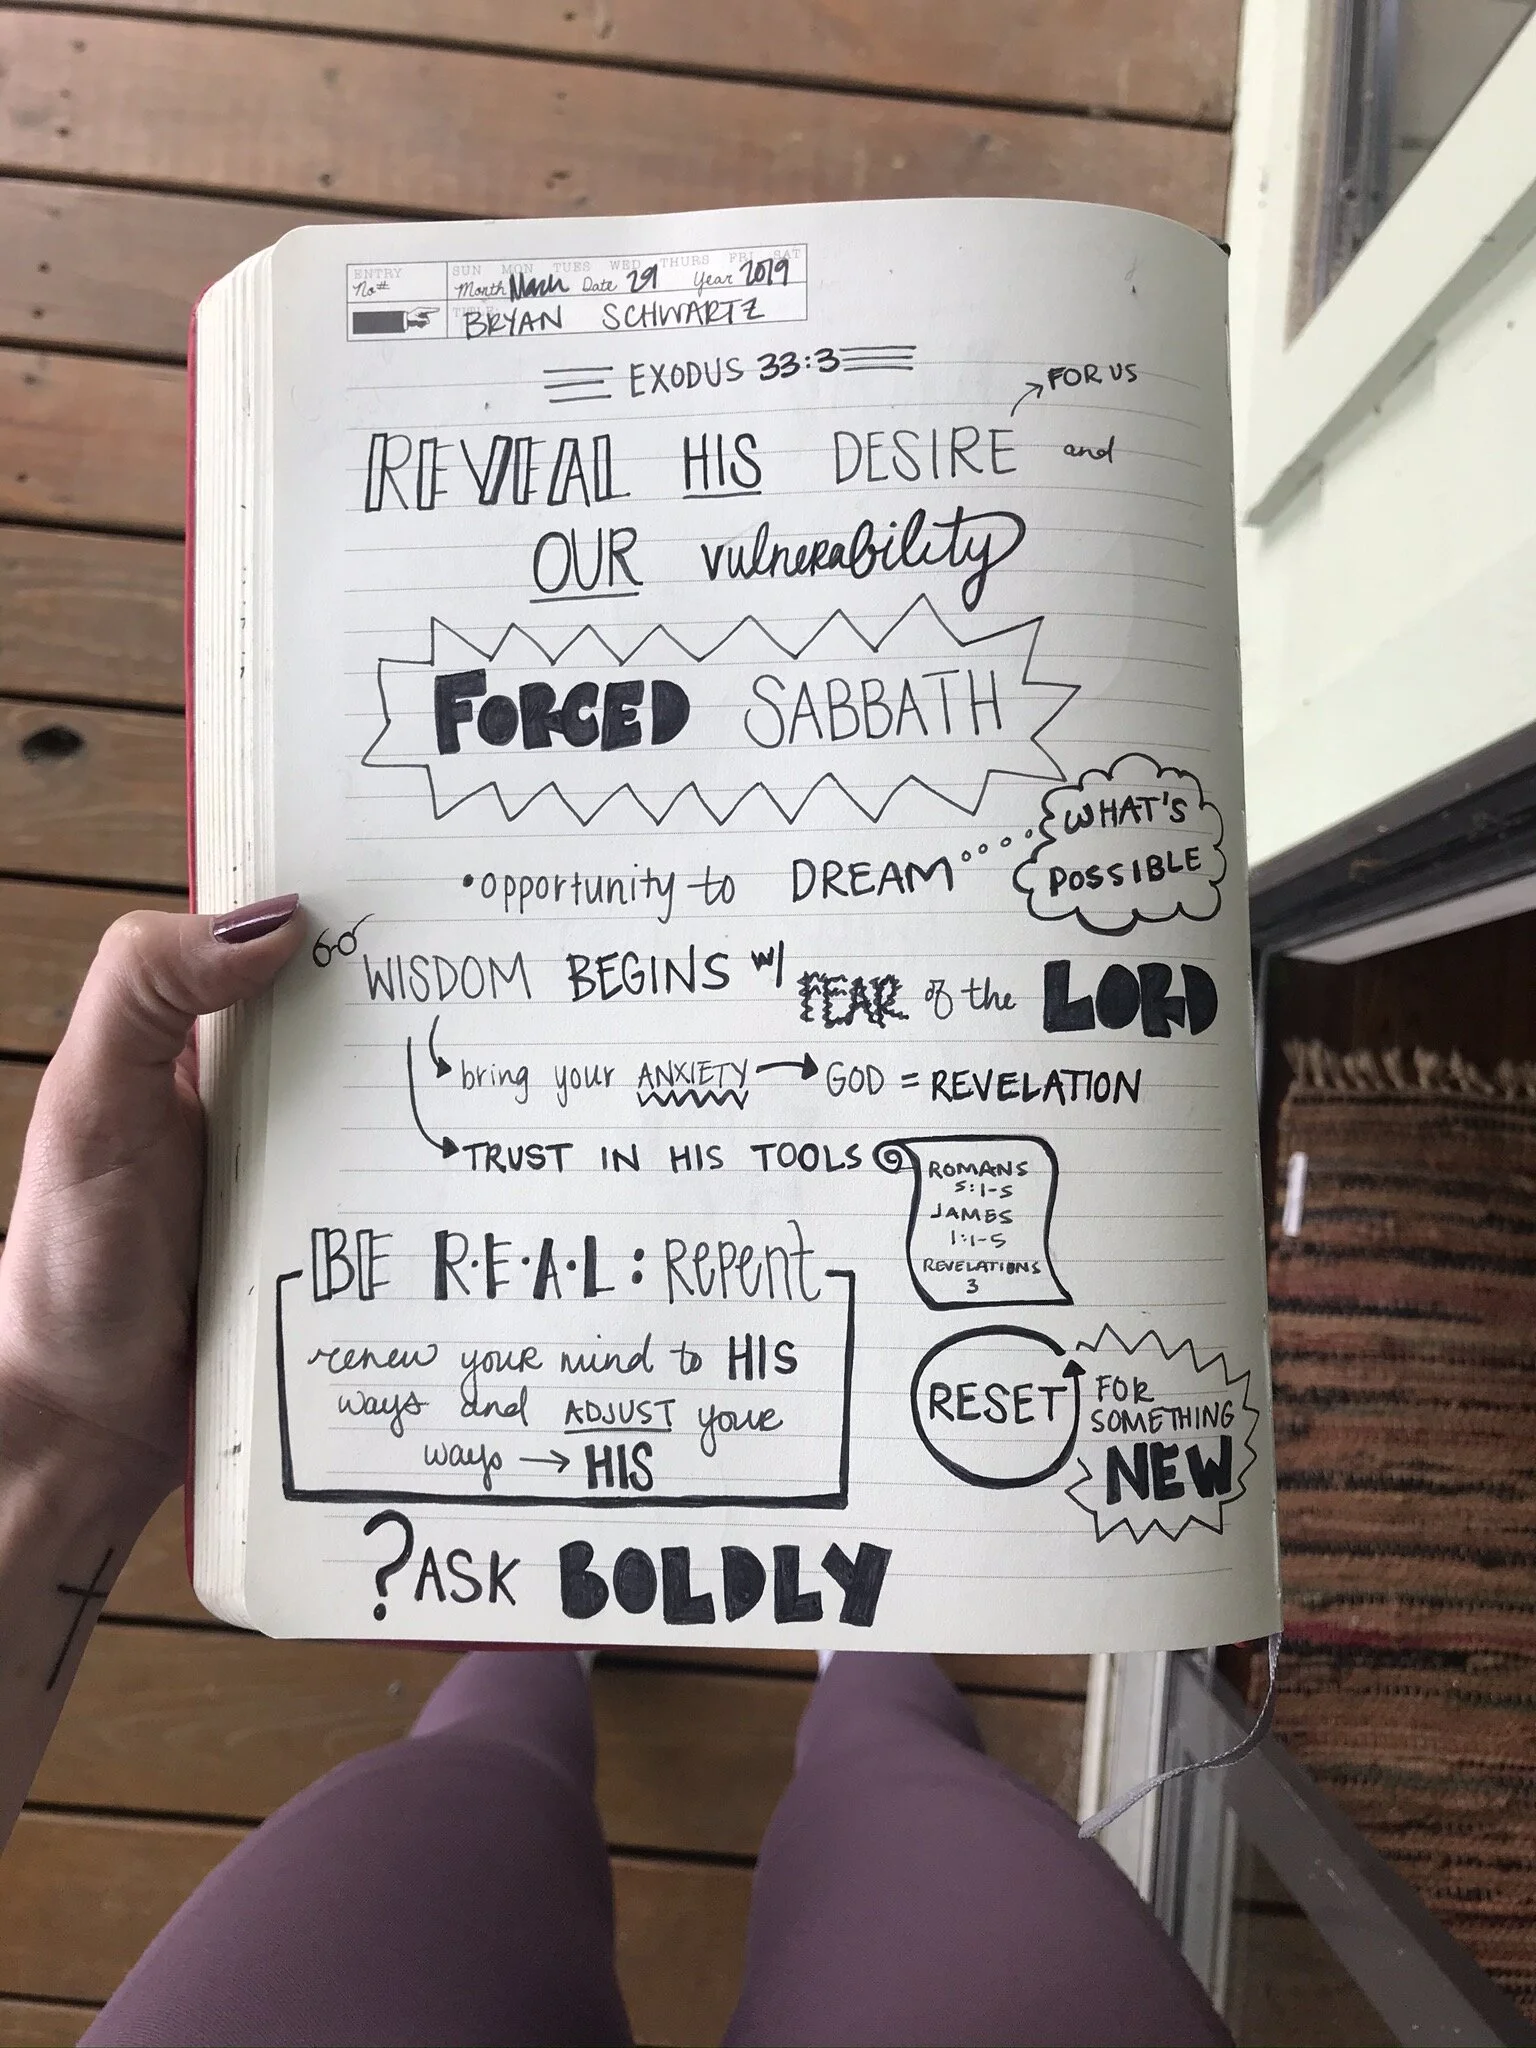 ENTRY SUN MON TUES WED THURS FRI SAT
No# Month March Date 29 Year 2019
TITLE BRYAN SCHWARTZ
EXODUS 33:3
FOR US
REVEAL HIS DESIRE and
OUR vulnerability
FORCED SABBATH
WHAT'S
POSSIBLE
•opportunity to DREAM
WISDOM BEGINS w/ FEAR of the LORD
bring your ANXIETY → GOD = REVELATION
TRUST IN HIS TOOLS
ROMANS
5:1-5
JAMES
1:1-5
REVELATIONS
3
BE R·E·A·L: Repent
renew your mind to HIS
ways and ADJUST your
ways → HIS
RESET
FOR
SOMETHING
NEW
? ASK BOLDLY